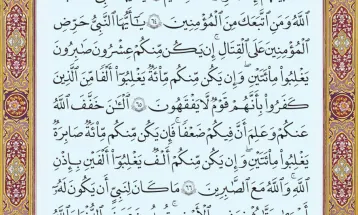 ٱللَّهُ وَمَنِ ٱتَّبَعَكَ مِنَ ٱلْمُؤْمِنِينَ ٦٤ يَٰٓأَيُّهَا ٱلنَّبِىُّ حَرِّضِ
ٱلْمُؤْمِنِينَ عَلَى ٱلْقِتَالِ ۚ إِن يَكُن مِّنكُمْ عِشْرُونَ صَٰبِرُونَ
يَغْلِبُوا۟ مِا۟ئَتَيْنِ ۚ وَإِن يَكُن مِّنكُم مِّا۟ئَةٌ يَغْلِبُوٓا۟ أَلْفًا مِّنَ ٱلَّذِينَ
كَفَرُوا۟ بِأَنَّهُمْ قَوْمٌ لَّا يَفْقَهُونَ ٦٥ ٱلْـَٰٔنَ خَفَّفَ ٱللَّهُ
عَنكُمْ وَعَلِمَ أَنَّ فِيكُمْ ضَعْفًا ۚ فَإِن يَكُن مِّنكُم مِّا۟ئَةٌ صَابِرَةٌ
يَغْلِبُوا۟ مِا۟ئَتَيْنِ ۚ وَإِن يَكُن مِّنكُمْ أَلْفٌ يَغْلِبُوٓا۟ أَلْفَيْنِ بِإِذْنِ
ٱللَّهِ ۗ وَٱللَّهُ مَعَ ٱلصَّٰبِرِينَ ٦٦ مَا كَانَ لِنَبِىٍّ أَن يَكُونَ لَهُۥٓ